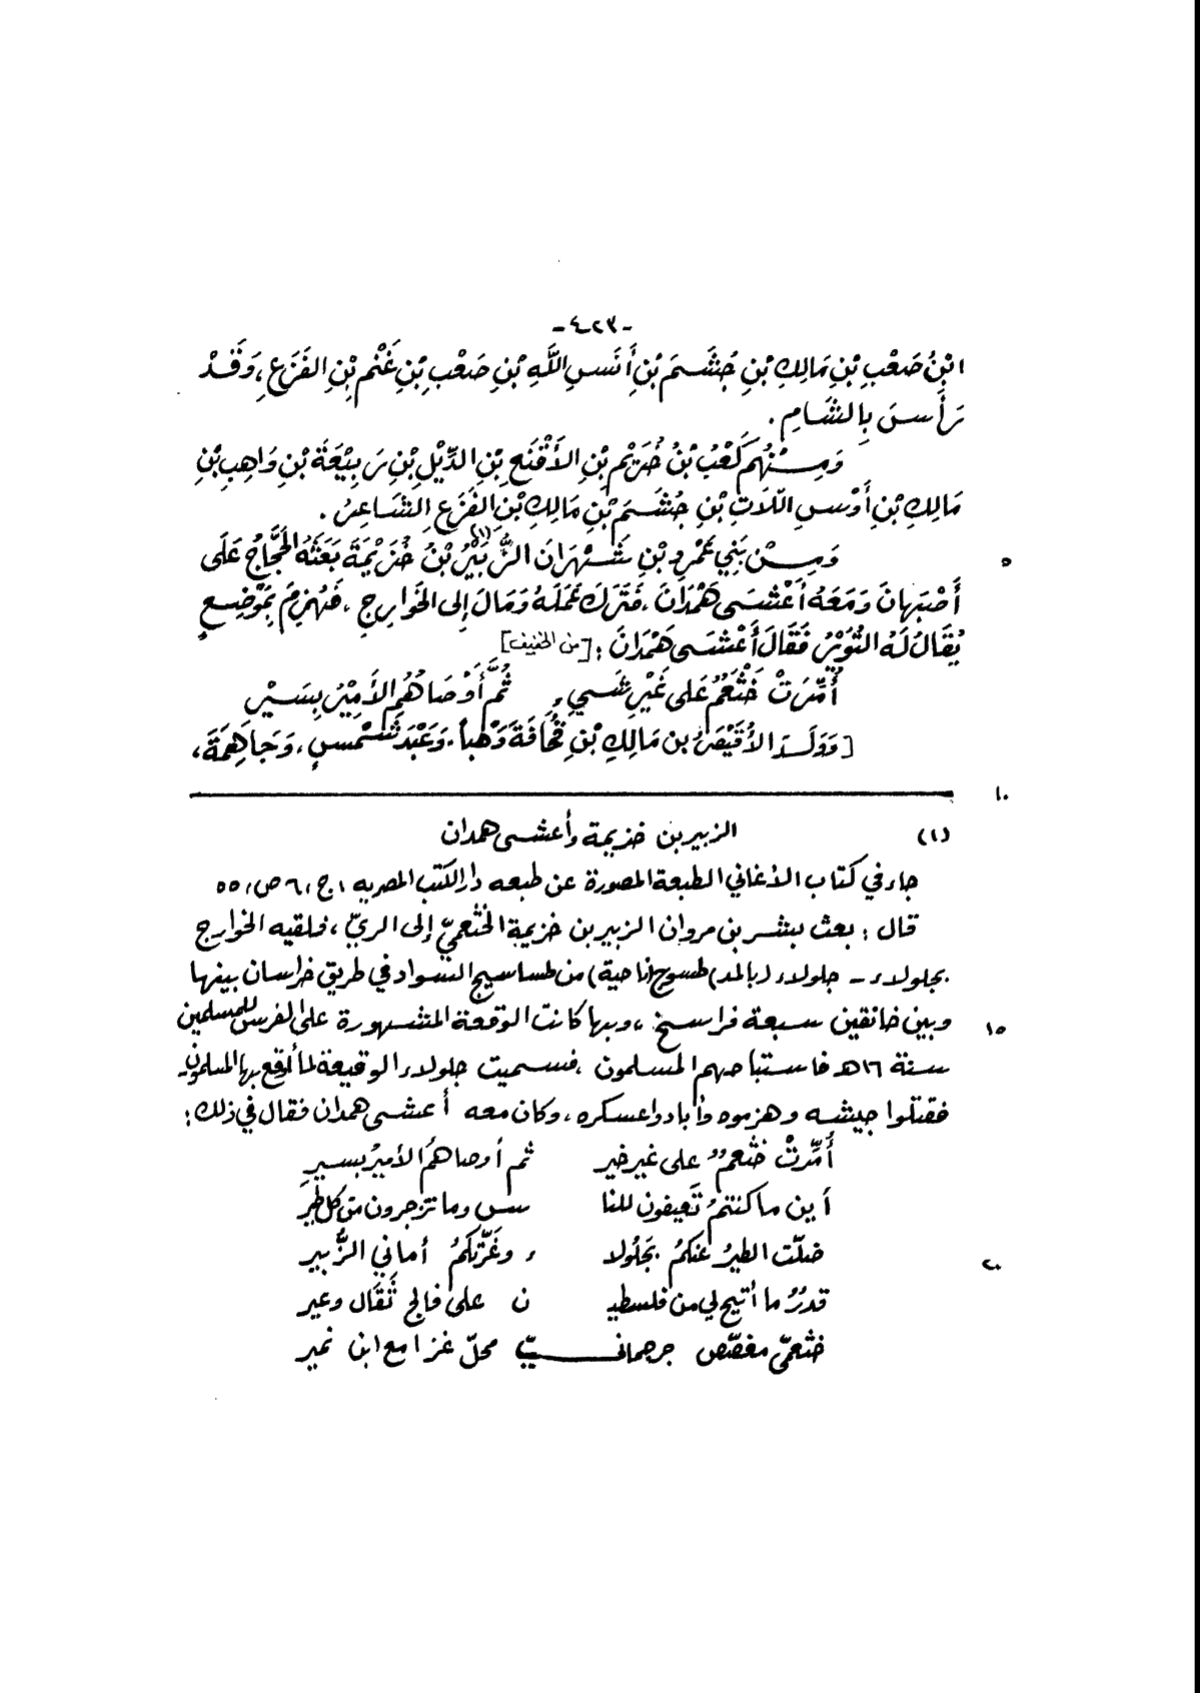 -٤٢٣-
ابْنُ صَعْبِ بْنِ مَالِكِ بْنِ جُشَمَ بْنِ أَنَسِ اللَّهِ بْنِ صَعْبِ بْنِ غَنْمِ بْنِ الفَزَعِ، وَقَدْ
تَرَأَّسَ بِالشَّامِ.
وَمِنْهُم كَعْبُ بْنُ خُزَيْمِ بْنِ الأَقْنَعِ بْنِ الدِّيْلِ بْنِ رَبِيْعَةَ بْنِ وَاهِبِ بْنِ
مَالِكِ بْنِ أَوْسِ اللَّاتِ بْنِ جُشَمَ بْنِ مَالِكِ بْنِ الفَزَعِ الشَّاعِرُ.
وَمِنْ بَنِي عَمْرِو بْنِ شَهْرَانَ الزُّبَيْرُ(١) بْنُ خُزَيْمَةَ بَعَثَهُ الحَجَّاجُ عَلَى ٥
أَصْبَهَانَ وَمَعَهُ أَعْشَى هَمْدَانَ، فَتَرَكَ عَمَلَهُ وَمَالَ إِلَى الخَوَارِجِ، فَهُزِمَ بِمَوْضِعٍ
يُقَالُ لَهُ فَقَالَ أَعْشَى هَمْدَانَ: [من الخفيف]
أُمِّرَتْ خَثْعَمٌ عَلَى غَيْرِ شَيءٍ ثُمَّ أَوْصَاهُمِ الأَمِيْرُ بِسَيْرِ
[وَوَلَدَ الأُقَيْصِرُ بن مَالِكِ بْنِ قُحَافَةَ وَهْباً، وَعَبْدَ شَمْسٍ، وَجَاهِمَةَ،
١٠
(١) الزبير بن خزيمة وأعشى همدان
جاء في كتاب الأغاني الطبعة المصورة عن طبعه دار الكتب المصريه، ج/٦ ص/٥٥
قال: بعث بشر بن مروان الزبير بن خزيمة الخثعميّ إلى الريّ، فلقيه الخوارج
بجلولاء - جلولاء (بالمد) طسوج (ناحية) من طساسيج السواد في طريق خراسان بينها
وبين خانقين سبعة فراسخ، وبها كانت الوقعة المشهورة على الفرس للمسلمين ١٥
سنة ١٦هـ فاستباحهم المسلمون، فسميت جلولاء الوقيعة لما أوقع بها المسلمون-
فقتلوا جيشه وهزموه وأبادوا عسكره، وكان معه أعشى همدان فقال في ذلك:
أُمِّرتْ خثعمٌ على غير خير ثم أوصاهُم الأميرُ بسيرِ
أين ما كنتمُ تَعيفون للنا س وما تزجرون من كل طير
ضلّت الطيرُ عنكمُ بجَلُولا ء وغَرّتكمُ أماني الزُّبير ٢٠
قدرٌ ما أتيح لي من فلسطيـ ن على فالج ثَقَال وعير
خثعميّ مغصّص جرجمانـــيّ محلّ غزا مع ابن نمير